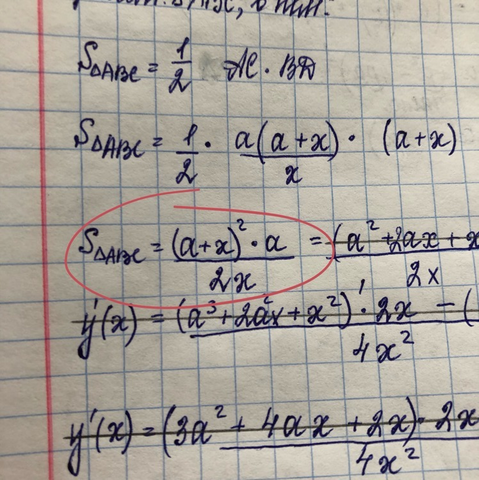 S△ABC = 1/2 AC · BD
S△ABC = 1/2 · a(a+x)/x · (a+x)
S△ABC = (a+x)² · a / 2x = (a² + 2ax + x / 2x
y'(x) = (a³ + 2a²x + x²)' · 2x − ( / 4x²
y'(x) = (3a² + 4ax + 2x) · 2x / 4x²